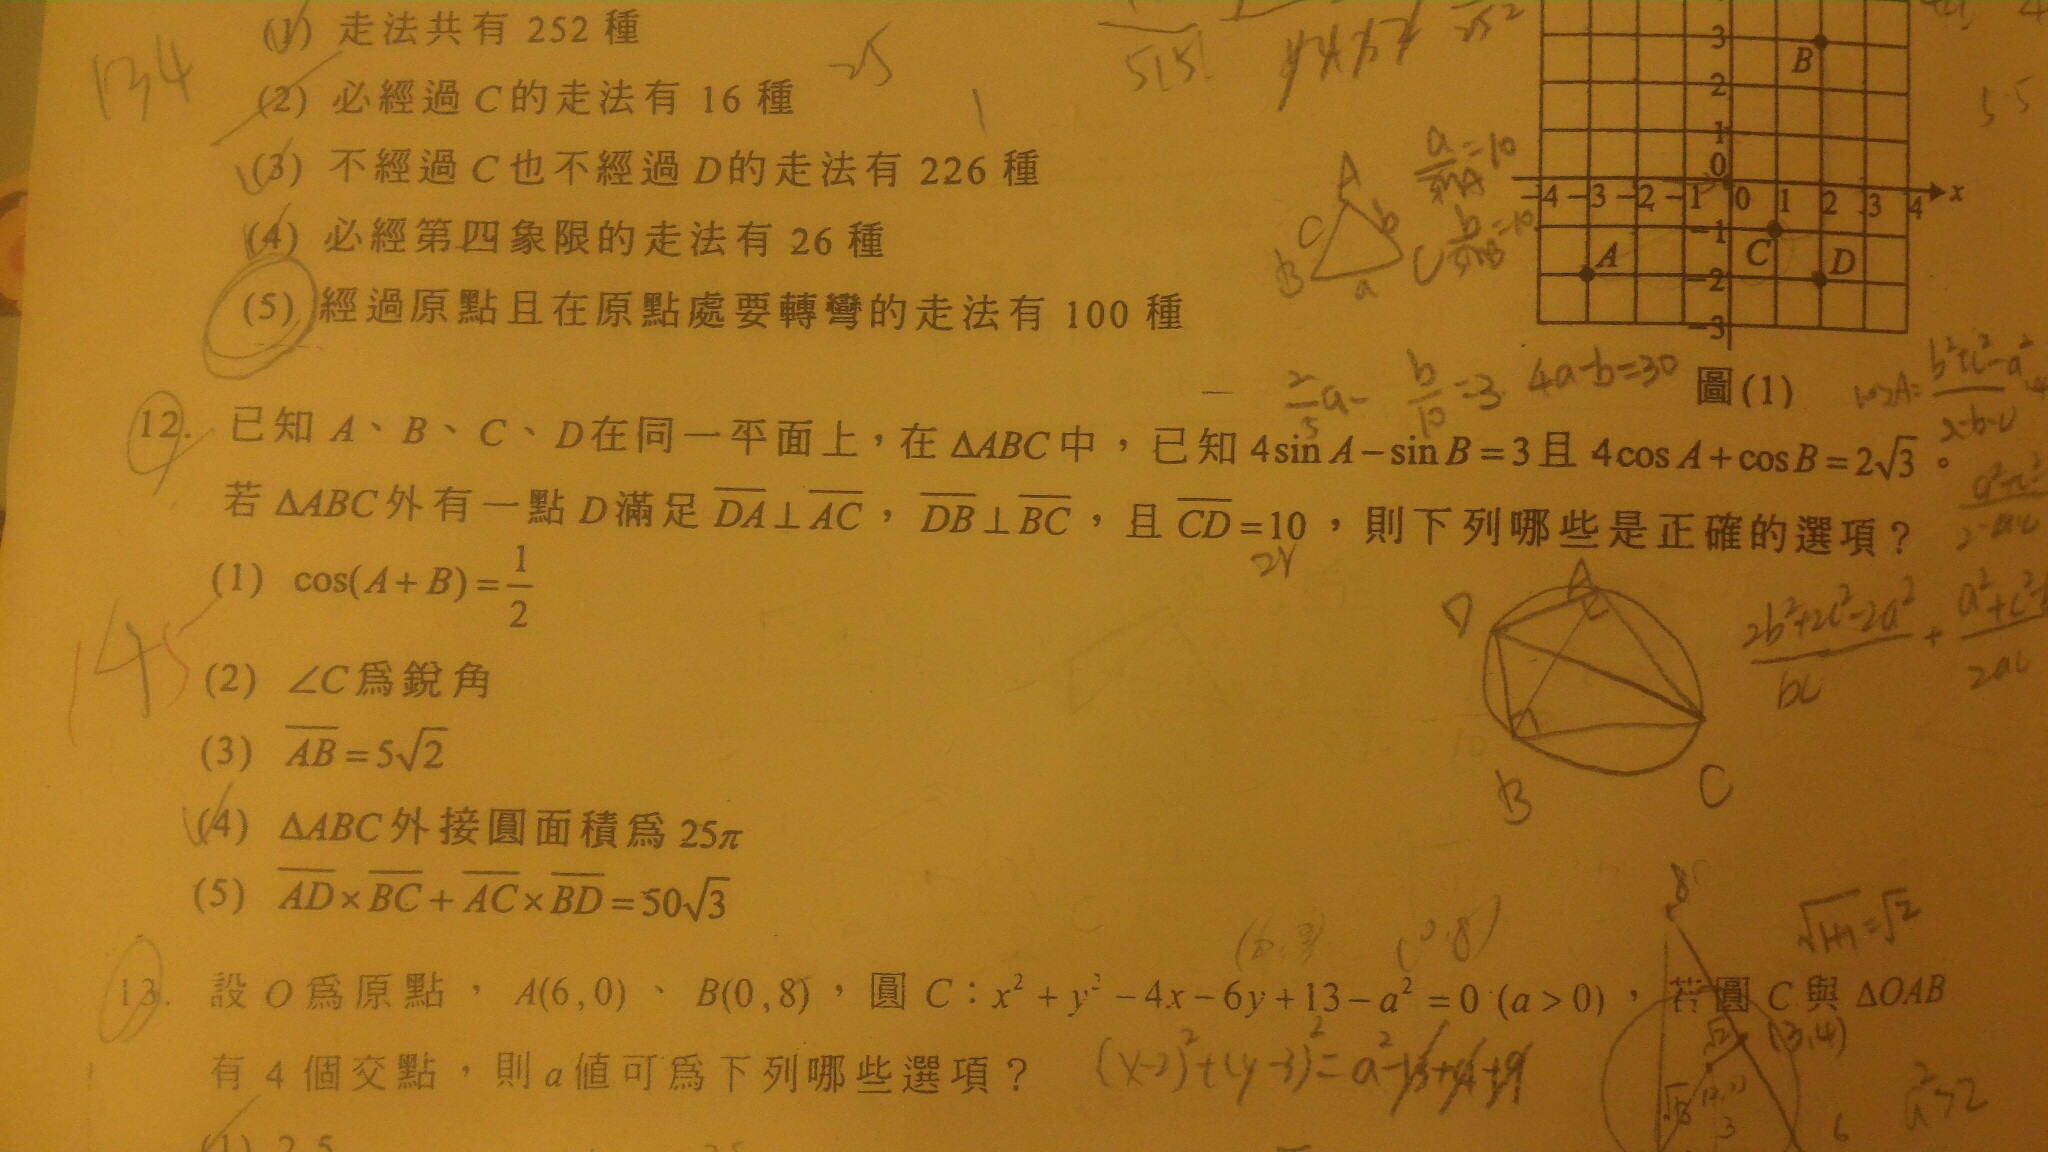 (1) 走法共有 252 種
134
(2) 必經過 C 的走法有 16 種
25
(3) 不經過 C 也不經過 D 的走法有 226 種
(4) 必經第四象限的走法有 26 種
(5) 經過原點且在原點處要轉彎的走法有 100 種
5!5!
3
B
2
1
0
-4 -3 -2 -1 0 1 2 3 4 x
-1
A C D
-2
-3
圖(1)
A
c b
B a C
a/sinA=10
b/sinB=10
2/5a - b/10 = 3 4a-b=30
12. 已知 A、B、C、D 在同一平面上，在 ΔABC 中，已知 4sin A－sin B＝3 且 4cos A＋cos B＝2√3。
若 ΔABC 外有一點 D 滿足 DA⊥AC，DB⊥BC，且 CD＝10，則下列哪些是正確的選項？
2r
(1) cos(A＋B)＝1/2
145
(2) ∠C 為銳角
(3) AB＝5√2
(4) ΔABC 外接圓面積為 25π
(5) AD×BC＋AC×BD＝50√3
A
D
B C
13. 設 O 為原點，A(6,0)、B(0,8)，圓 C：x²＋y²－4x－6y＋13－a²＝0 (a＞0)，若圓 C 與 ΔOAB
有 4 個交點，則 a 值可為下列哪些選項？
(x-2)²+(y-3)²=a²-13+4+9
√1+1=√2
(3,4)
a²>2
8
6
3
(1) 2.5